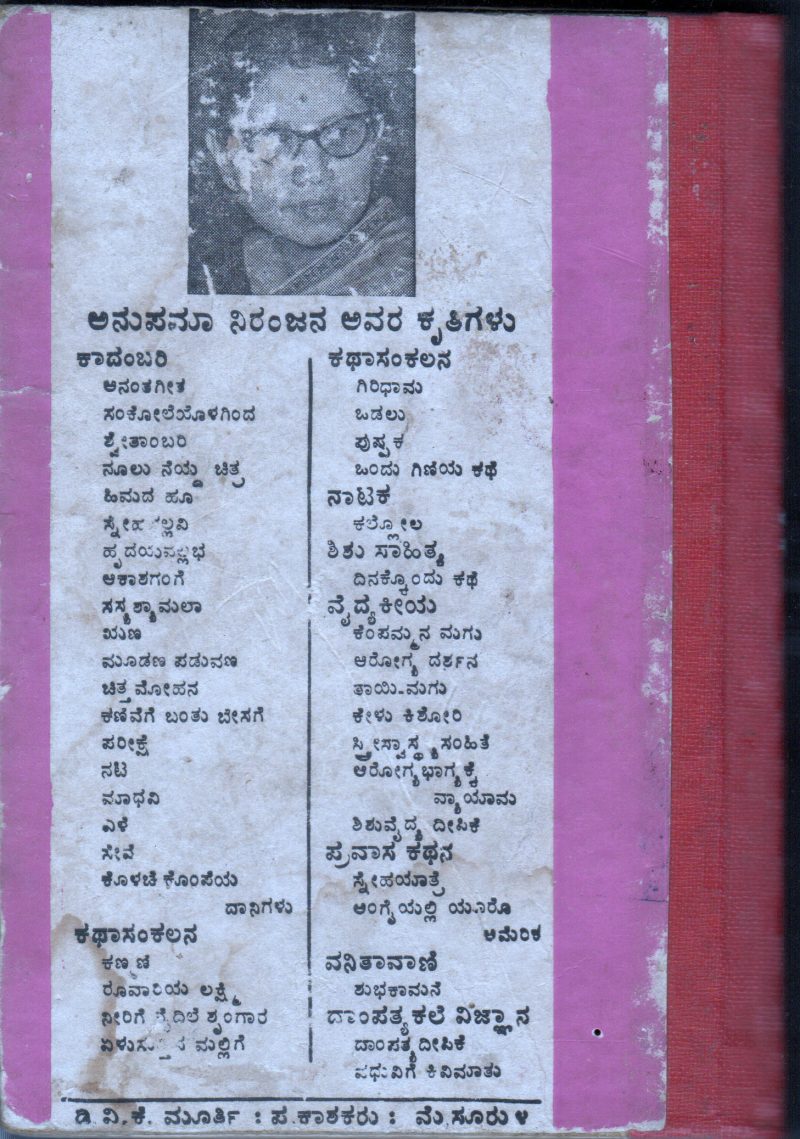 ಅನುಪಮಾ ನಿರಂಜನ ಅವರ ಕೃತಿಗಳು
ಕಾದಂಬರಿ
ಅನಂತಗೀತ
ಸಂಕೋಲೆಯೊಳಗಿಂದ
ಶ್ವೇತಾಂಬರಿ
ನೂಲು ನೆಯ್ದ ಚಿತ್ರ
ಹಿಮದ ಹೂ
ಹೃದಯವಲ್ಲಭ
ಆಕಾಶಗಂಗೆ
ಸಸ್ಯಶ್ಯಾಮಲಾ
ಋಣ
ಮೂಡಣ ಪಡುವಣ
ಚಿತ್ತ ಮೋಹನ
ಕಣಿವೆಗೆ ಬಂತು ಬೇಸಗೆ
ಪರೀಕ್ಷೆ
ನಟಿ
ಮಾಧವಿ
ಎಳೆ
ಸೇವೆ
ಕೊಳಚೆ ಕೊಂಪೆಯ
ದಾನಿಗಳು
ಕಥಾಸಂಕಲನ
ಕಣ್ಮಣಿ
ರೂವಾರಿಯ ಲಕ್ಷ್ಮಿ
ನೀರಿಗೆ ನೈದಿಲೆ ಶೃಂಗಾರ
ಏಳುಸುತ್ತಿನ ಮಲ್ಲಿಗೆ
ಕಥಾಸಂಕಲನ
ಗಿರಿಧಾಮ
ಒಡಲು
ಪುಷ್ಪಕ
ಒಂದು ಗಿಣಿಯ ಕಥೆ
ನಾಟಕ
ಕಲ್ಲೋಲ
ಶಿಶು ಸಾಹಿತ್ಯ
ದಿನಕ್ಕೊಂದು ಕಥೆ
ವೈದ್ಯಕೀಯ
ಕೆಂಪಮ್ಮನ ಮಗು
ಆರೋಗ್ಯ ದರ್ಶನ
ತಾಯಿ-ಮಗು
ಕೇಳು ಕಿಶೋರಿ
ಸ್ತ್ರೀಸ್ವಾಸ್ಥ್ಯಸಂಹಿತೆ
ಆರೋಗ್ಯಭಾಗ್ಯಕ್ಕೆ
ವ್ಯಾಯಾಮ
ಶಿಶುವೈದ್ಯ ದೀಪಿಕೆ
ಪ್ರವಾಸ ಕಥನ
ಸ್ನೇಹಯಾತ್ರೆ
ಅಂಗೈಯಲ್ಲಿ ಯೂರೊ
ಅಮೆರಿಕ
ವನಿತಾವಾಣಿ
ಶುಭಕಾಮನೆ
ದಾಂಪತ್ಯ ಕಲೆ ವಿಜ್ಞಾನ
ದಾಂಪತ್ಯ ದೀಪಿಕೆ
ವಧುವಿಗೆ ಕಿವಿಮಾತು
ಡಿ ವಿ.ಕೆ. ಮೂರ್ತಿ : ಪ್ರಕಾಶಕರು : ಮೈಸೂರು ೪